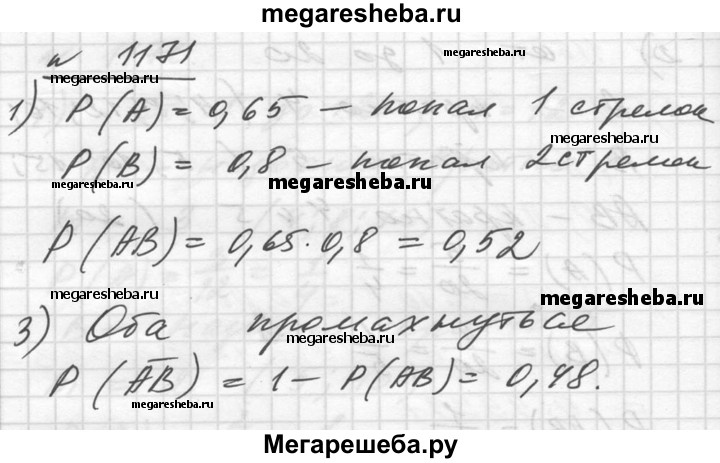 megaresheba.ru
№ 1171
megaresheba.ru
megaresheba.ru
1) P(A) = 0,65 — попал 1 стрелок
megaresheba.ru
P(B) = 0,8 — попал 2 стрелок
megaresheba.ru
megaresheba.ru
P(AB) = 0,65·0,8 = 0,52
megaresheba.ru
megaresheba.ru
3) Оба промахнуться
megaresheba.ru
P(A̅B̅) = 1 – P(AB) = 0,48.
megaresheba.ru
Мегарешеба.ру